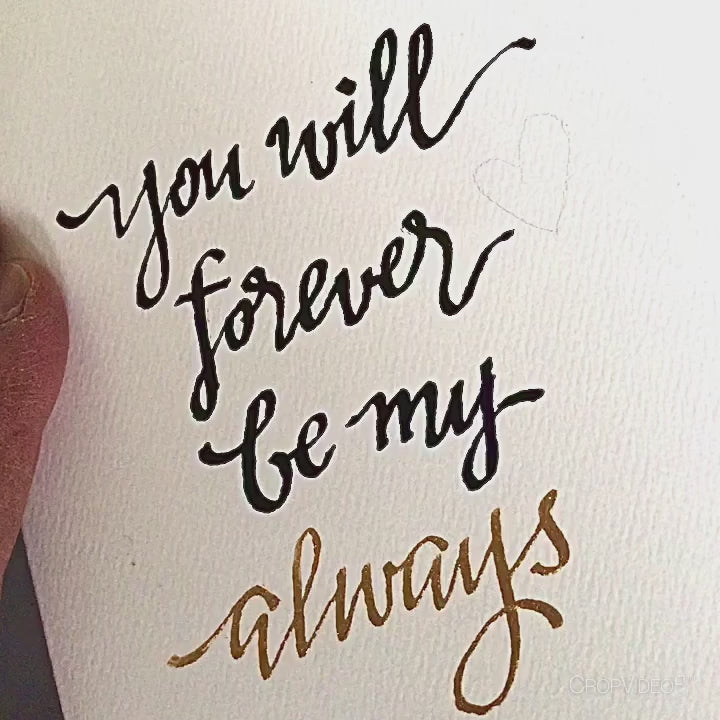 you will
forever
be my
always
CROPVIDEO